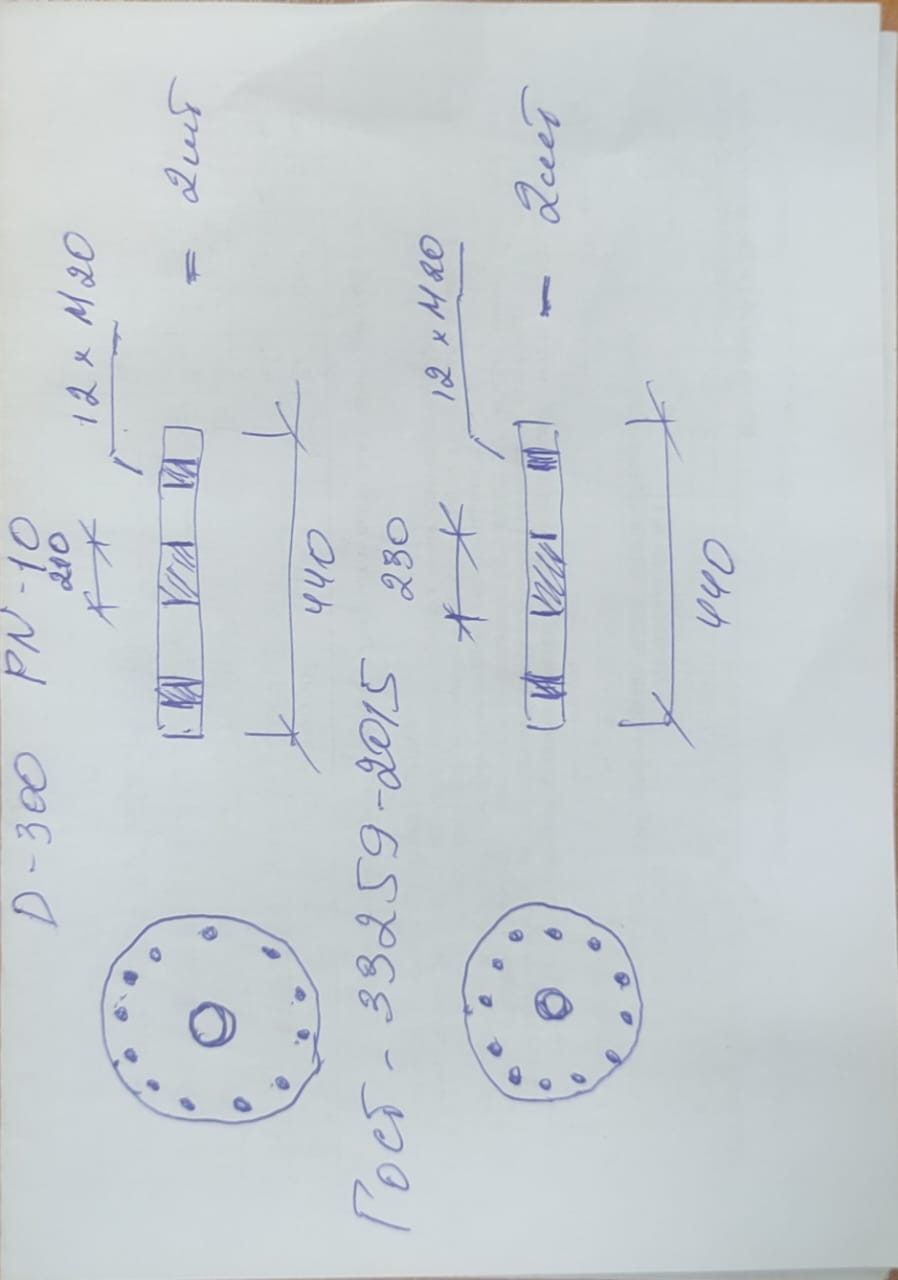 D-300 PN-10
210
12 x М20
= 2шт
440
Гост-33259-2015
230
12 x М20
- 2шт
440